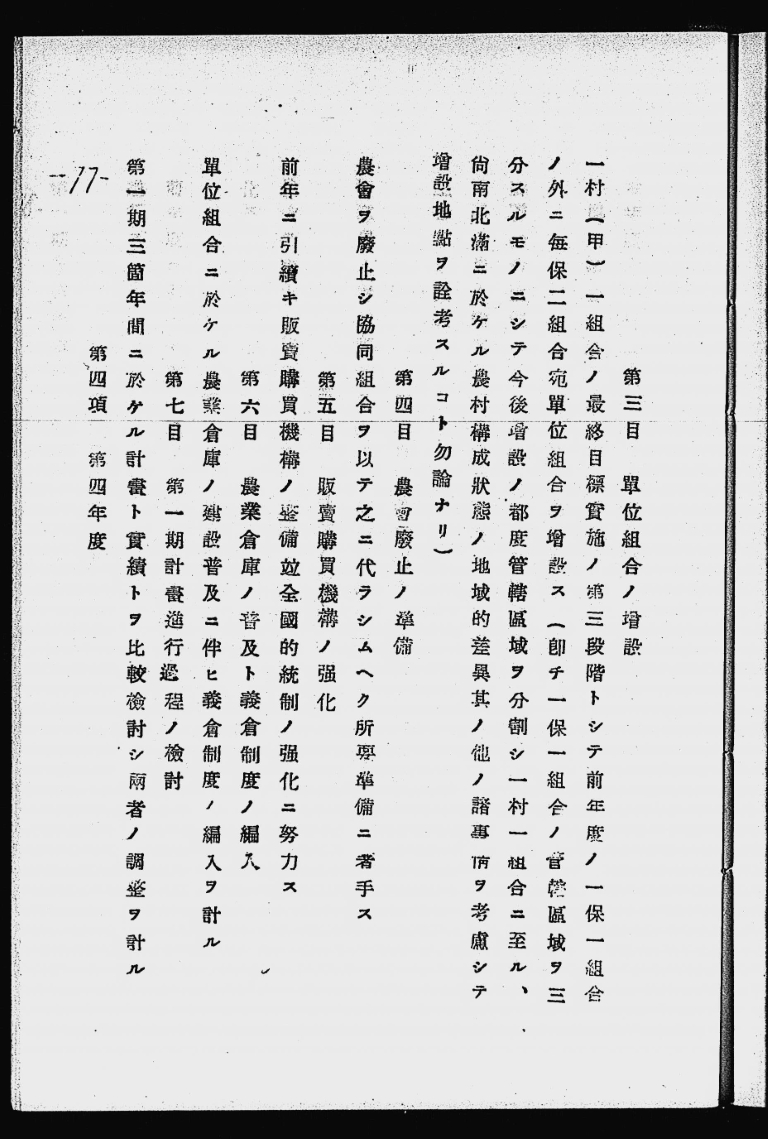 第三目 單位組合ノ增設
一村（甲）一組合ノ最終目標實施ノ第三段階トシテ前年度ノ一保一組合
ノ外ニ每保二組合宛單位組合ヲ增設ス（卽チ一保一組合ノ管轄區域ヲ三
分スルモノニシテ今後增設ノ都度管轄區域ヲ分割シ一村一組合ニ至ル、
尙南北滿ニ於ケル農村構成狀態ノ地域的差異其ノ他ノ諸事情ヲ考慮シテ
增設地點ヲ詮考スルコト勿論ナリ）
第四目 農會廢止ノ準備
農會ヲ廢止シ協同組合ヲ以テ之ニ代ラシムヘク所要準備ニ著手ス
第五目 販賣購買機構ノ强化
前年ニ引續キ販賣購買機構ノ整備竝全國的統制ノ强化ニ努力ス
第六目 農業倉庫ノ普及ト義倉制度ノ編入
單位組合ニ於ケル農業倉庫ノ建設普及ニ伴ヒ義倉制度ノ編入ヲ計ル
第七目 第一期計畫進行過程ノ檢討
第一期三箇年間ニ於ケル計畫ト實績トヲ比較檢討シ兩者ノ調整ヲ計ル
第四項 第四年度
-77-